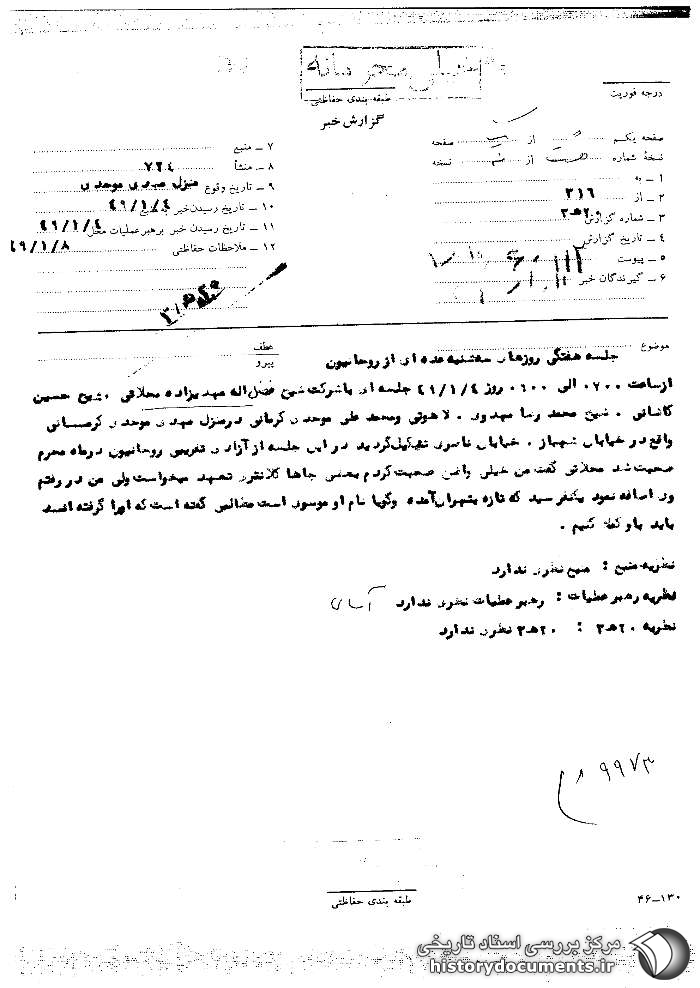 خیلی محرمانه
درجه فوریت
طبقه بندی حفاظتی
گزارش خبر
صفحه یکم از صفحه
نسخهٔ شماره از نسخه
۱ ـ به
۲ ـ از ۳۱۶
۳ ـ شماره گزارش ۲۰هـ۳
۴ ـ تاریخ گزارش
۵ ـ پیوست
۶ ـ گیرندگان خبر
۷ ـ منبع
۸ ـ منشأ ۷۲۴
۹ ـ تاریخ وقوع منزل مهدی موحدی
۱۰ ـ تاریخ رسیدن خبر به منبع ۴۹/۱/۴
۱۱ ـ تاریخ رسیدن خبر برهبر عملیات محل ۴۹/۱/۴
۱۲ ـ ملاحظات حفاظتی ۴۹/۱/۸
موضوع
جلسه هفتگی روزهای سه‌شنبه عده ای از روحانیون
عطف
پیرو
ازساعت ۰۷۰۰ الی روز ۴۹/۱/۴ جلسه ای با شرکت شیخ فضل‌اله مهدیزاده محلاتی ، شیخ حسین
کاشانی ، شیخ محمد رضا مهدوی ، لاهوتی ومحمد علی موحدی کرمانی درمنزل مهدی موحدی کرمانی
واقع در خیابان شهباز ، خیابان ناصری تشکیل گردید در این جلسه از آزادی روحانیون درماه محرم
صحبت شد محلاتی گفت من خیلی صحبت کردم بعضی جاها کلانتری تعهد میخواست ولی من در رفتم
وی اضافه نمود یکنفر سید که تازه بتهران آمده وگویا نام او موسوی است گفته است که اورا گرفته اند
باید باو کمک کنیم .
نظریه منبع : منبع نظری ندارد
نظریه رهبر عملیات : رهبر عملیات نظری ندارد
نظریه ۲۰هـ۳ : ۲۰هـ۳ نظری ندارد
۹۹۷۳
طبقه بندی حفاظتی
۴۶ـ۱۳۰
مرکز بررسی اسناد تاریخی
historydocuments.ir